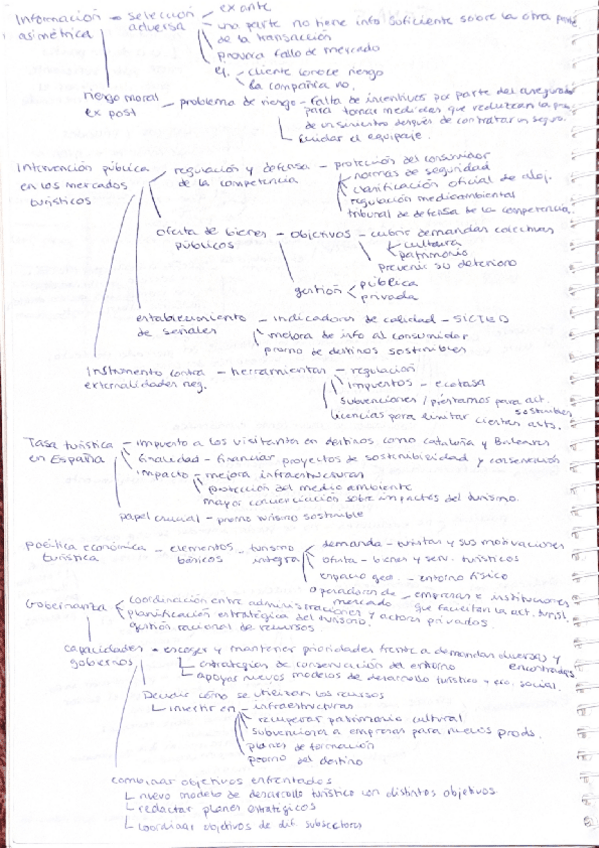 Información - selección ex ante
asimétrica adversa una parte no tiene info suficiente sobre la otra parte
de la transacción
provoca fallo de mercado
ej. - cliente conoce riesgo
la compañía no.
riesgo moral - problema de riesgo - falta de incentivos por parte del asegurado
ex post para tomar medidas que reduzcan la
de un siniestro después de contratar un seguro.
cuidar el equipaje.
Intervención pública regulación y defensa - protección del consumidor
en los mercados de la competencia normas de seguridad
turísticos clasificación oficial de aloj.
regulación medioambiental
tribunal de defensa de la competencia.
oferta de bienes - objetivos - cubrir demandas colectivas
públicos cultura
patrimonio
prevenir su deterioro
gestión pública
privada
establecimiento - indicadores de calidad - SICTED
de señales mejora de info al consumidor
promo de destinos sostenibles
Instrumento contra - herramientas - regulación
externalidades neg. impuestos - ecotasa
subvenciones / préstamos para act. sostenibles
licencias para limitar ciertas acts.
Tasa turística - impuesto a los visitantes en destinos como cataluña y Baleares
en España finalidad - financiar proyectos de sostenibilidad y conservación
impacto - mejora infraestructuras
protección del medio ambiente
mayor concienciación sobre impactos del turismo.
papel crucial - promo turismo sostenible
Política económica - elementos - turismo demanda - turistas y sus motivaciones
turística básicos integral oferta - bienes y serv. turísticos
espacio geo. - entorno físico
operadores de mercado - empresas e instituciones
que facilitan la act. turíst.
Gobernanza coordinación entre administraciones y actores privados.
planificación estratégica del turismo.
gestión racional de recursos
capacidades - escoger y mantener prioridades frente a demandas diversas y
gobiernos encontradas
estrategias de conservación del entorno
apoyar nuevos modelos de desarrollo turístico y eco. social.
Decidir cómo se utilizan los recursos
invertir en - infraestructuras
recuperar patrimonio cultural
subvenciona a empresas para nuevos prods.
planes de formación
promo del destino
combinar objetivos enfrentados
nuevo modelo de desarrollo turístico con distintos objetivos
redactar planes estratégicos
coordinar objetivos de dif. subsectores